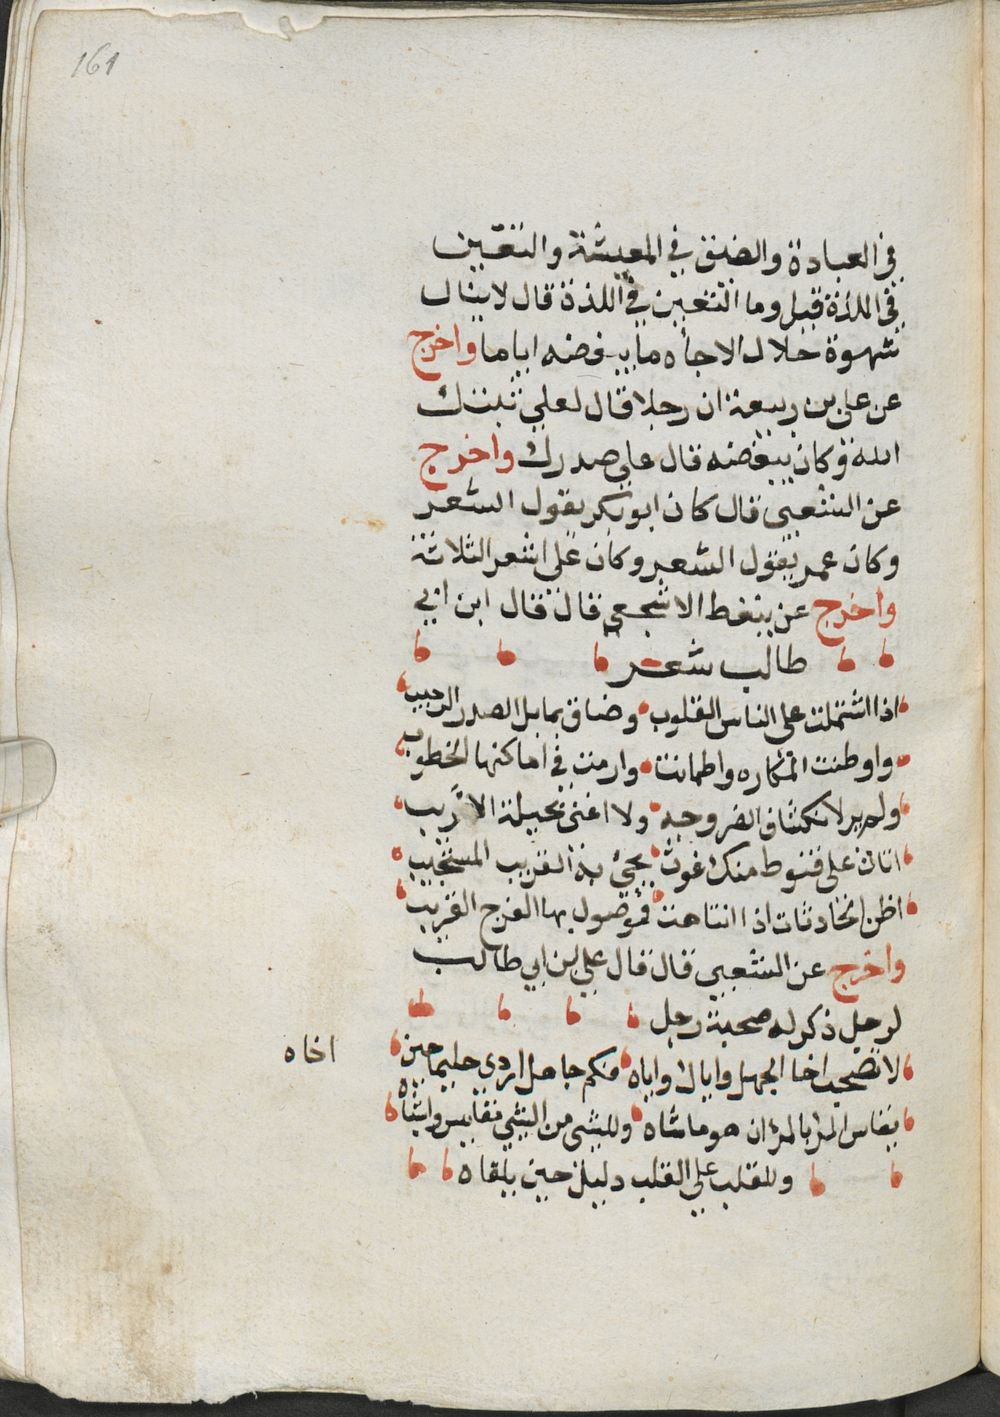 161
في العبادة والضيق في المعيشة والتغبين
في اللذة قيل وما التغبين في اللذة قال لا ينال
شهوة حلال الا جاه ما ينغصه اياها واخرج
عن علي بن ربيعة ان رجلا قال لعلي ثبتك
الله وكان يبغضه قال علي صدرك واخرج
عن الشعبي قال كان ابو بكر يقول الشعر
وكان عمر يقول الشعر وكان علي اشعر الثلاثة
واخرج عن نبيط الاشجعي قال قال ابن ابي
طالب شعر
اذا اشتملت على الناس القلوب وضاق بما بل الصدر الرحيب
واوطنت المكاره واطمانت وارست في اماكنها الخطوب
ولم ير لانكشاف الضر وجه ولا اغنى بحيلة الاريب
اتاك على قنوط منك غوث يجئ به القريب المستجيب
اظن الحادثات اذا انتاهت فموصول بها الفرج القريب
واخرج عن الشعبي قال قال علي بن ابي طالب
لرجل ذكر له صحبة رجل
لا تصحب اخا الجهل واياك واياه فكم جاهل اردى حليما حين
اخاه
يقاس المرء بالمرء ان هو ماشاه وللشي من الشي مقاييس واشباه
وللقلب على القلب دليل حين يلقاه